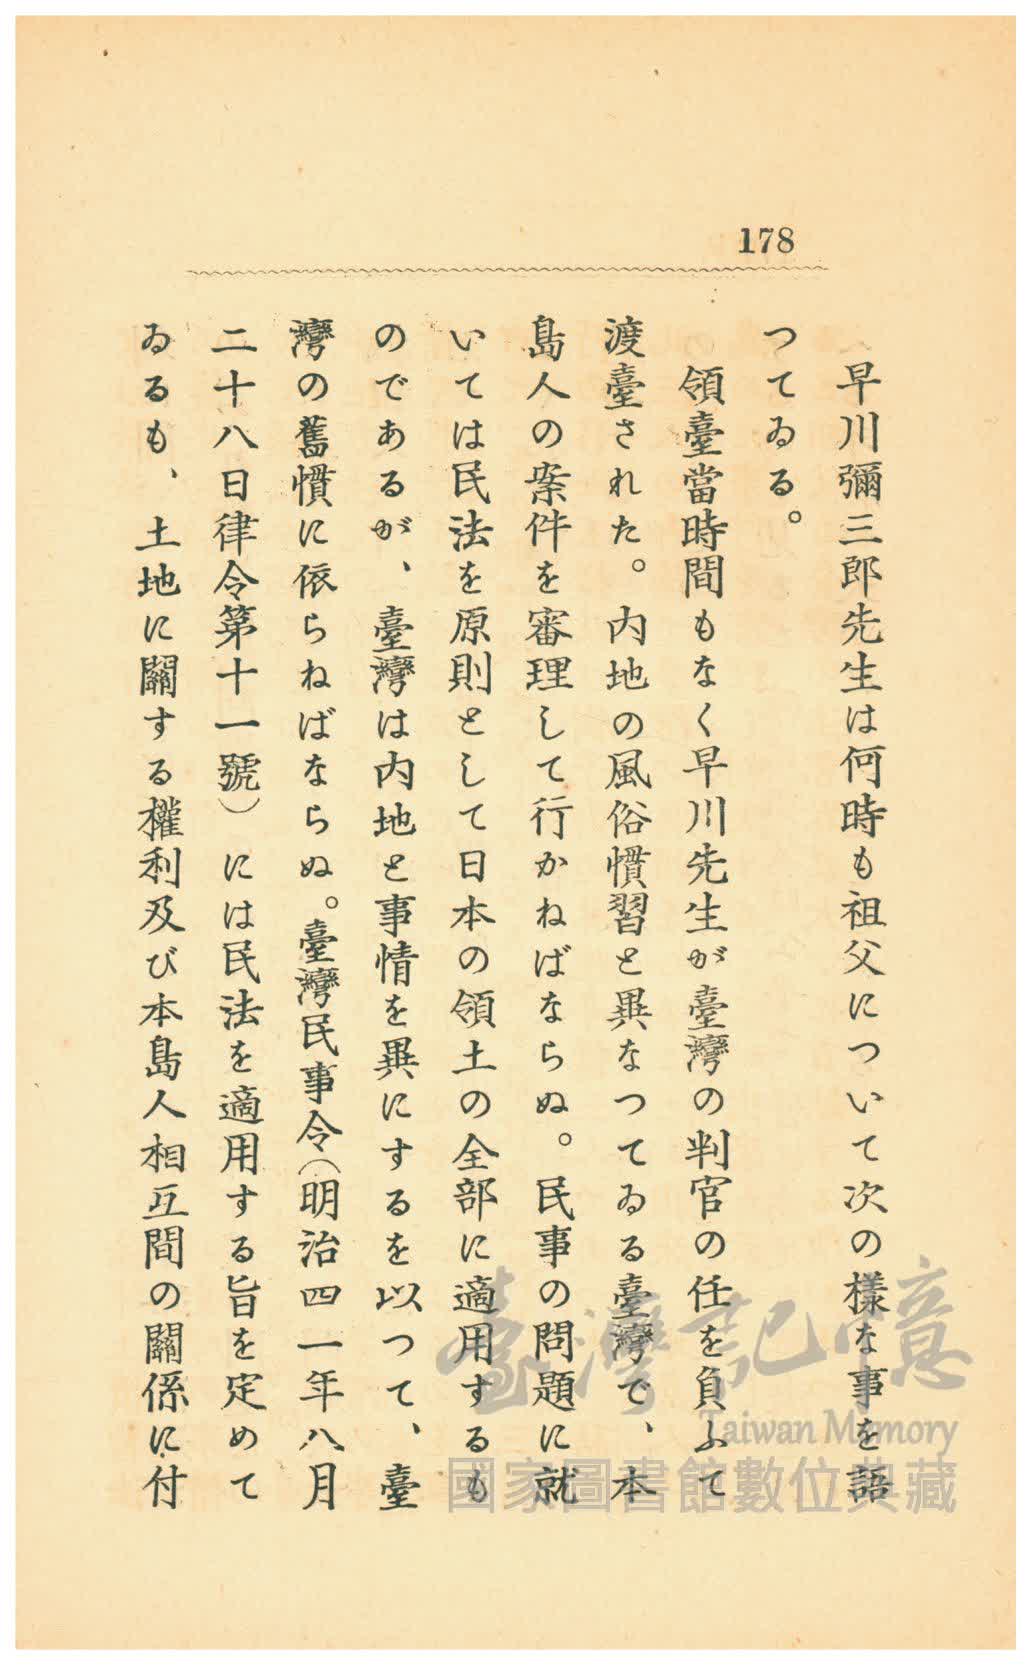 178
早川彌三郎先生は何時も祖父について次の樣な事を語
つてゐる。
領臺當時間もなく早川先生が臺灣の判官の任を負ふて
渡臺された。內地の風俗慣習と異なつてゐる臺灣で、本
島人の案件を審理して行かねばならぬ。民事の問題に就
いては民法を原則として日本の領土の全部に適用するも
のであるが、臺灣は內地と事情を異にするを以つて、臺
灣の舊慣に依らねばならぬ。臺灣民事令(明治四一年八月
二十八日律令第十一號)には民法を適用する旨を定めて
ゐるも、土地に關する權利及び本島人相互間の關係に付
臺灣記憶
Taiwan Memory
國家圖書館數位典藏